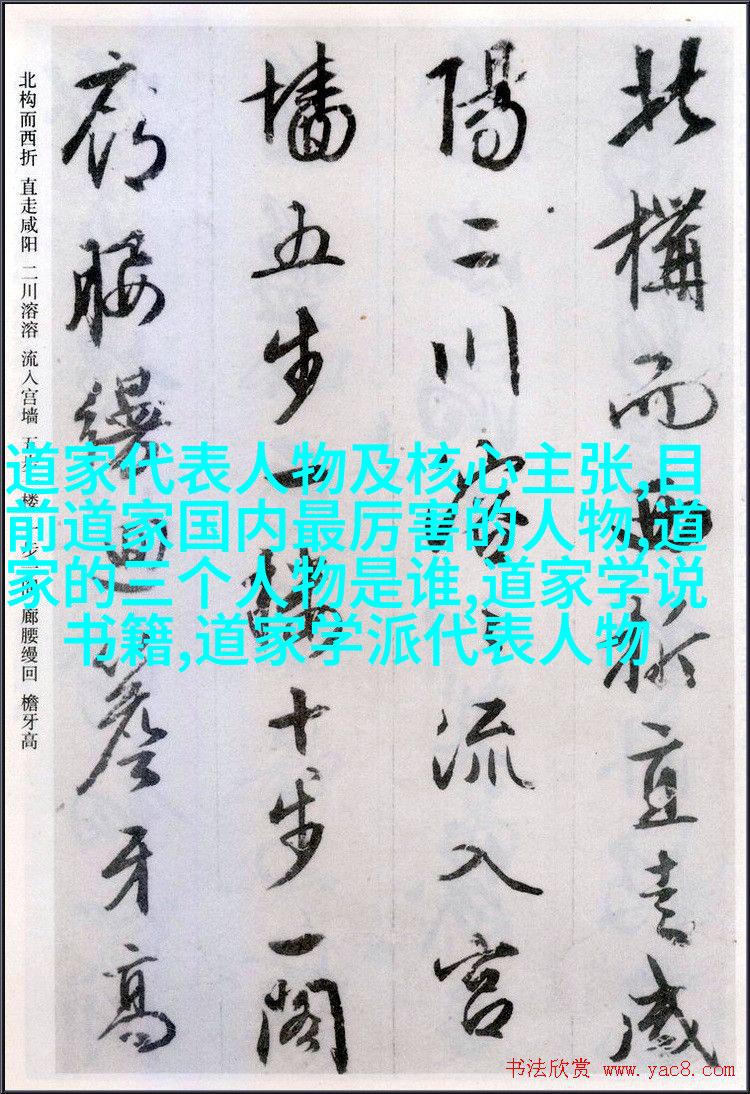 北構而西折直走咸
陽二川溶溶流入宮
墻五步一樓十步一閣
廊腰縵迴簷牙高
北构而西折 直走咸阳 二川溶溶 流入宫墙 五步一楼 十步一阁 廊腰缦回 檐牙高
道家代表人物及核心主张,目
前道家国内最厉害的人物,道
家的三个人物是谁,道家学说
书籍,道家学派代表人物
书法欣赏 www.yac8.com